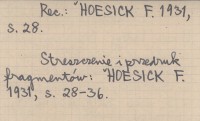 Rec.: ˇHOESICK F. 1931,
s. 28.
Streszczenie i przedruk
fragmentów: ˇHOESICK F.
1931, s. 28-36.